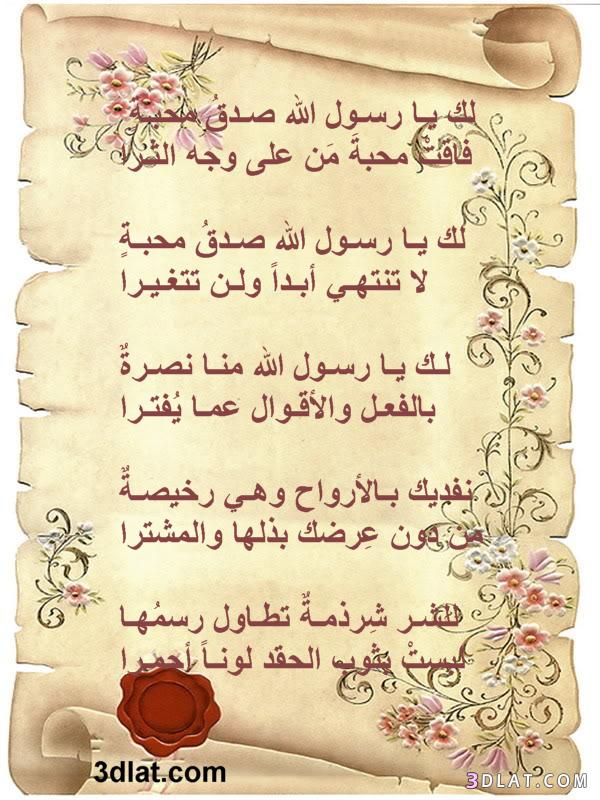 لك يا رسول الله صدقُ محبةٍ
فاقتْ محبةَ مَن على وجه الثرا
لك يا رسول الله صدقُ محبةٍ
لا تنتهي أبداً ولن تتغيرا
لك يا رسول الله منا نصرةٌ
بالفعل والأقوال عما يُفترا
نفديك بالأرواح وهي رخيصةٌ
من دون عِرضك بذلها والمشترا
للشر شِرذمةٌ تطاول رسمُها
لبستْ بثوب الحقد لوناً أحمرا
3dlat.com
3DLAT.COM